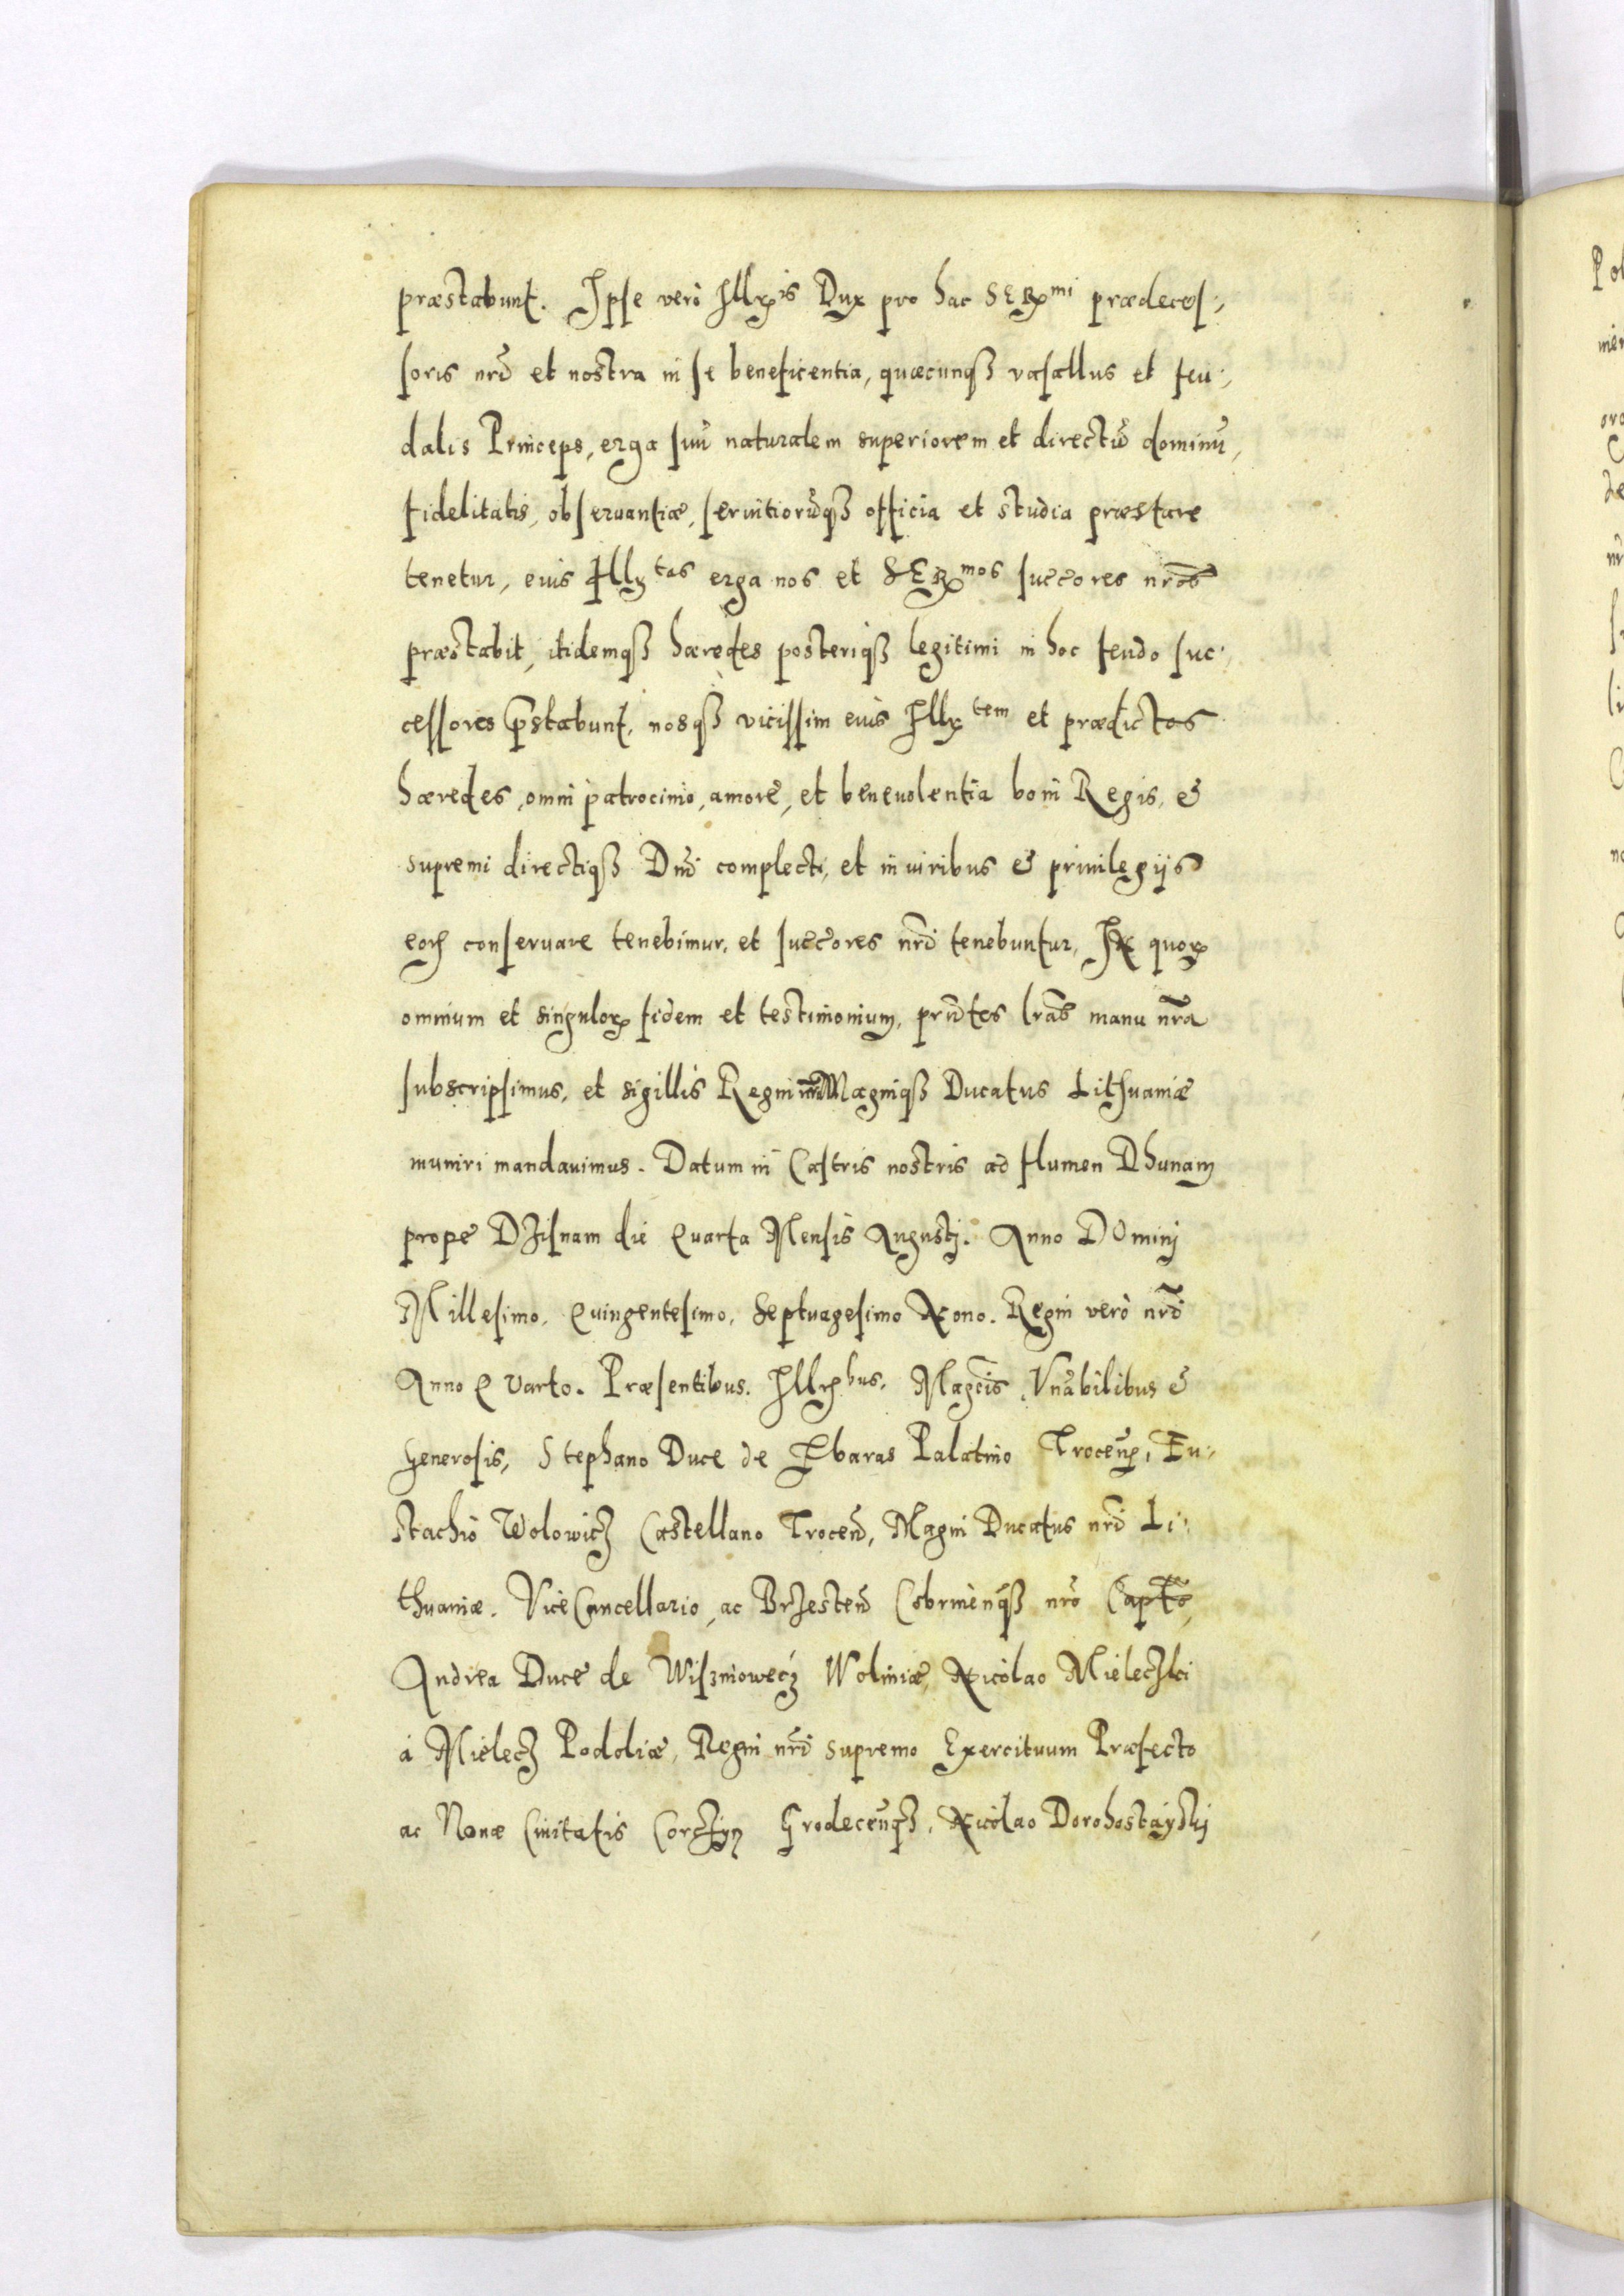 præstabunt. Ipse verò Illris Dux pro hac SERmi prædeces-
soris nri et nostra in se beneficentia, quæcunqȝ vasallus et feu-
dalis Princeps, erga suū naturalem superiorem et directū dominū,
fidelitatis, obseruantiæ, seruitiorūqȝ officia et studia præstare
tenetur, eius Illtas erga nos et SERmos succores nros
præstabit, itidemqȝ hæredes posteriqȝ legitimi in hoc feudo suc-
cessores p̄stabunt, nosqȝ vicissim eius Illrtem et prædictos
hæredes, omni patrocinio, amore, et beneuolentia boni Regis, &
supremi directiqȝ Dni complecti, et in iuribus & priuilegijs
eorꝝ conseruare tenebimur, et succores nri tenebuntur, In quorꝝ
omnium et singulorꝝ fidem et testimonium, prntes lras manu nra
subscripsimus, et sigillis Regni nri Magniqȝ Ducatus Lithuaniæ
muniri mandauimus. Datum in Castris nostris ad flumen Dhunam
prope Dzisnam die Quarta Mensis Augustj. Anno DOminj
Millesimo, Quingentesimo, Septuagesimo Nono. Regni verò nri
Anno Quarto. Præsentibus. Illrbus, Magcis, Vnābilibus &
Generosis, Stephano Duce de Zbaras Palatino Trocen, Eu-
stachio Wolowicz Castellano Trocen, Magni Ducatus nri Li-
thuaniæ. ViceCancellario, ac Brzesten Cobrinenqȝ nro Capto,
Andrea Duce de Wiszniowecz Woliniæ, Nicolao Mieleczki
á Mielecz Podoliæ, Regni nri supremo Exercituum Præfecto
ac Nouæ Ciuitatis Corczyn Grodecenqȝ, Nicolao Dorohostayskj
Pol